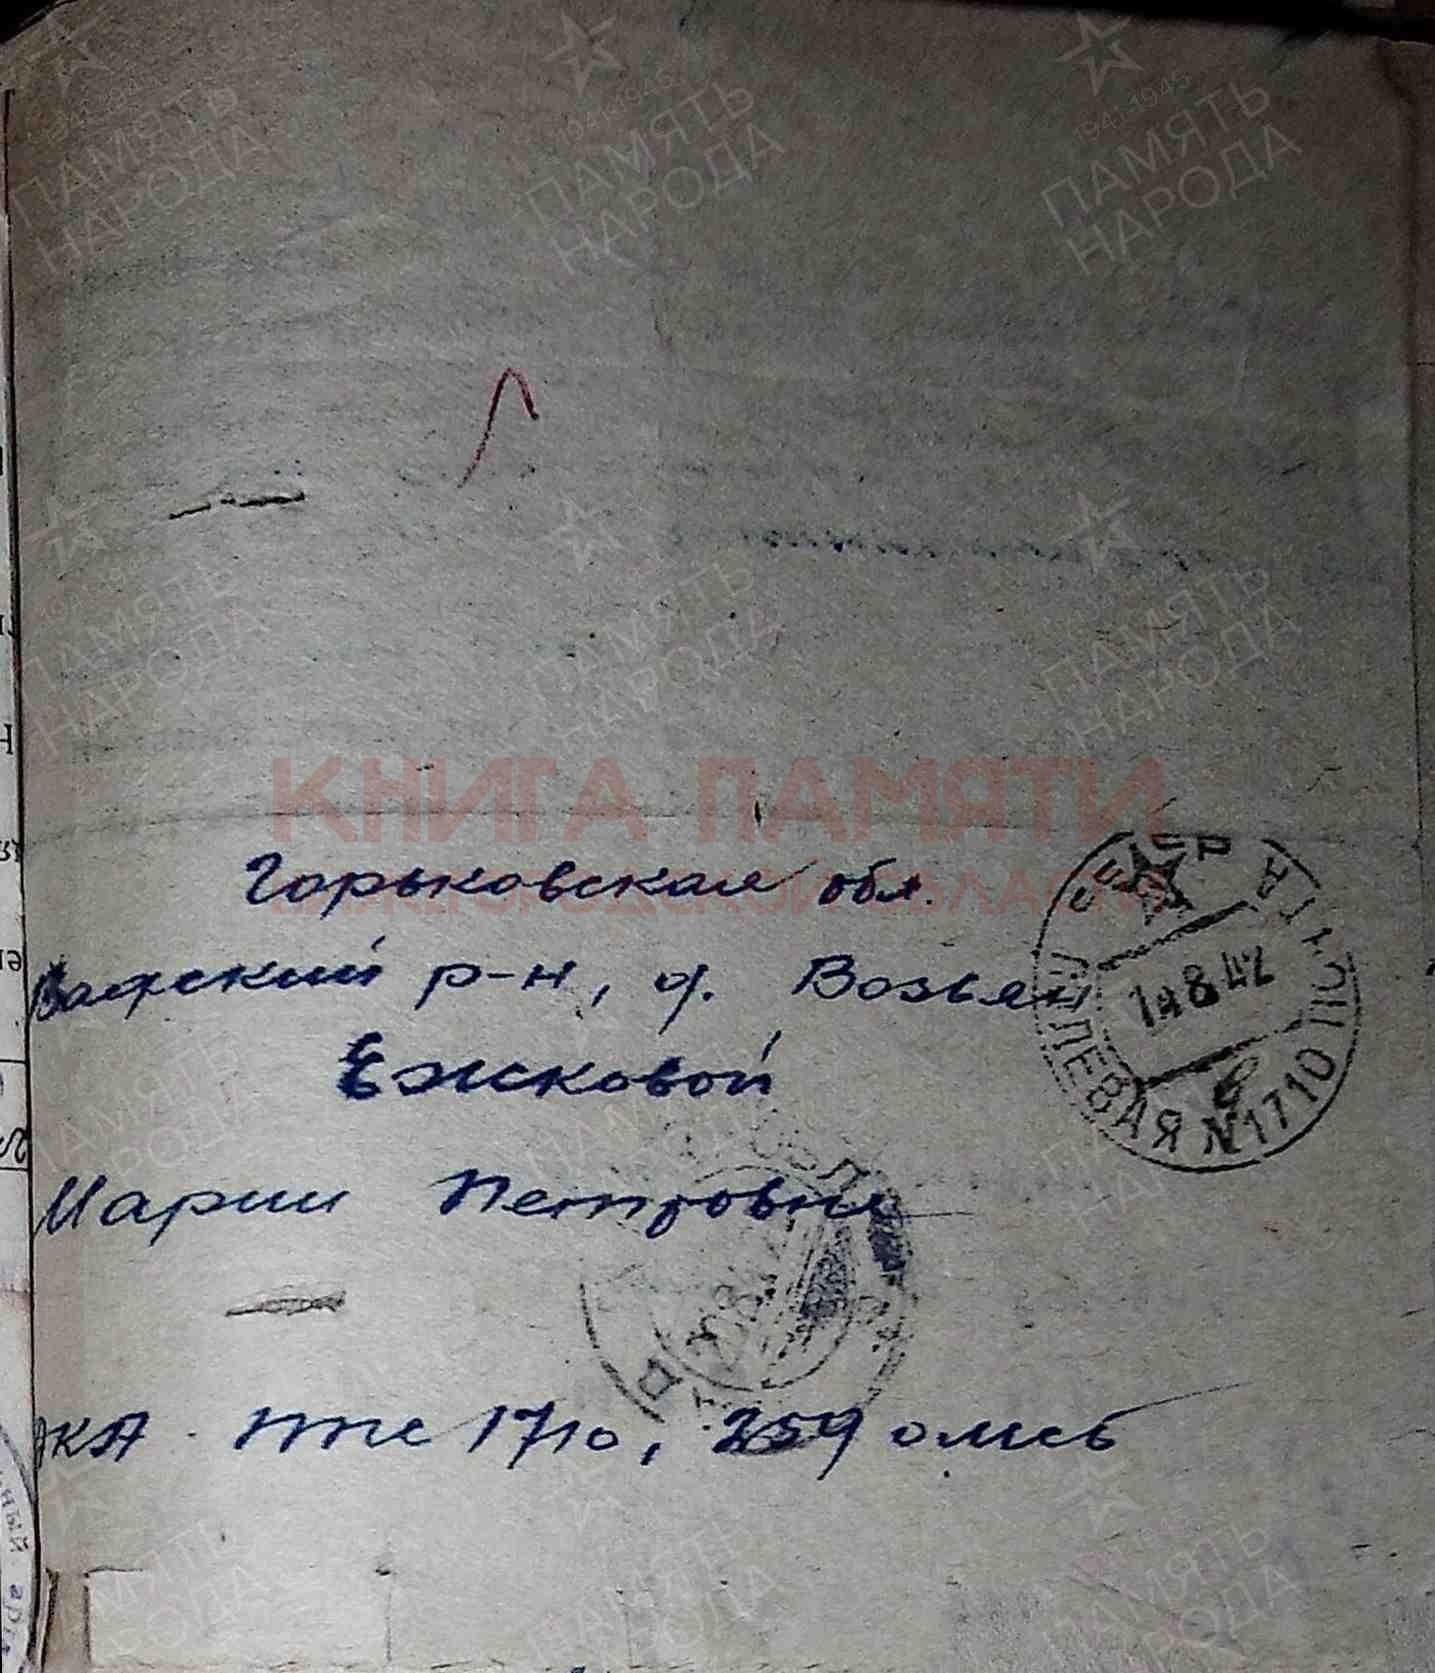 КНИГА ПАМЯТИ
НИЖЕГОРОДСКОЙ ОБЛАСТИ
Горьковская обл.
Вадский р-н, д. Возьян
Ежковой
Марии Петровне
ДКА ппс 1710, 259 омсб
СССР
ПОЛЕВАЯ ПОЧТА
N1710
14 8 42
1941-1945
ПАМЯТЬ
НАРОДА